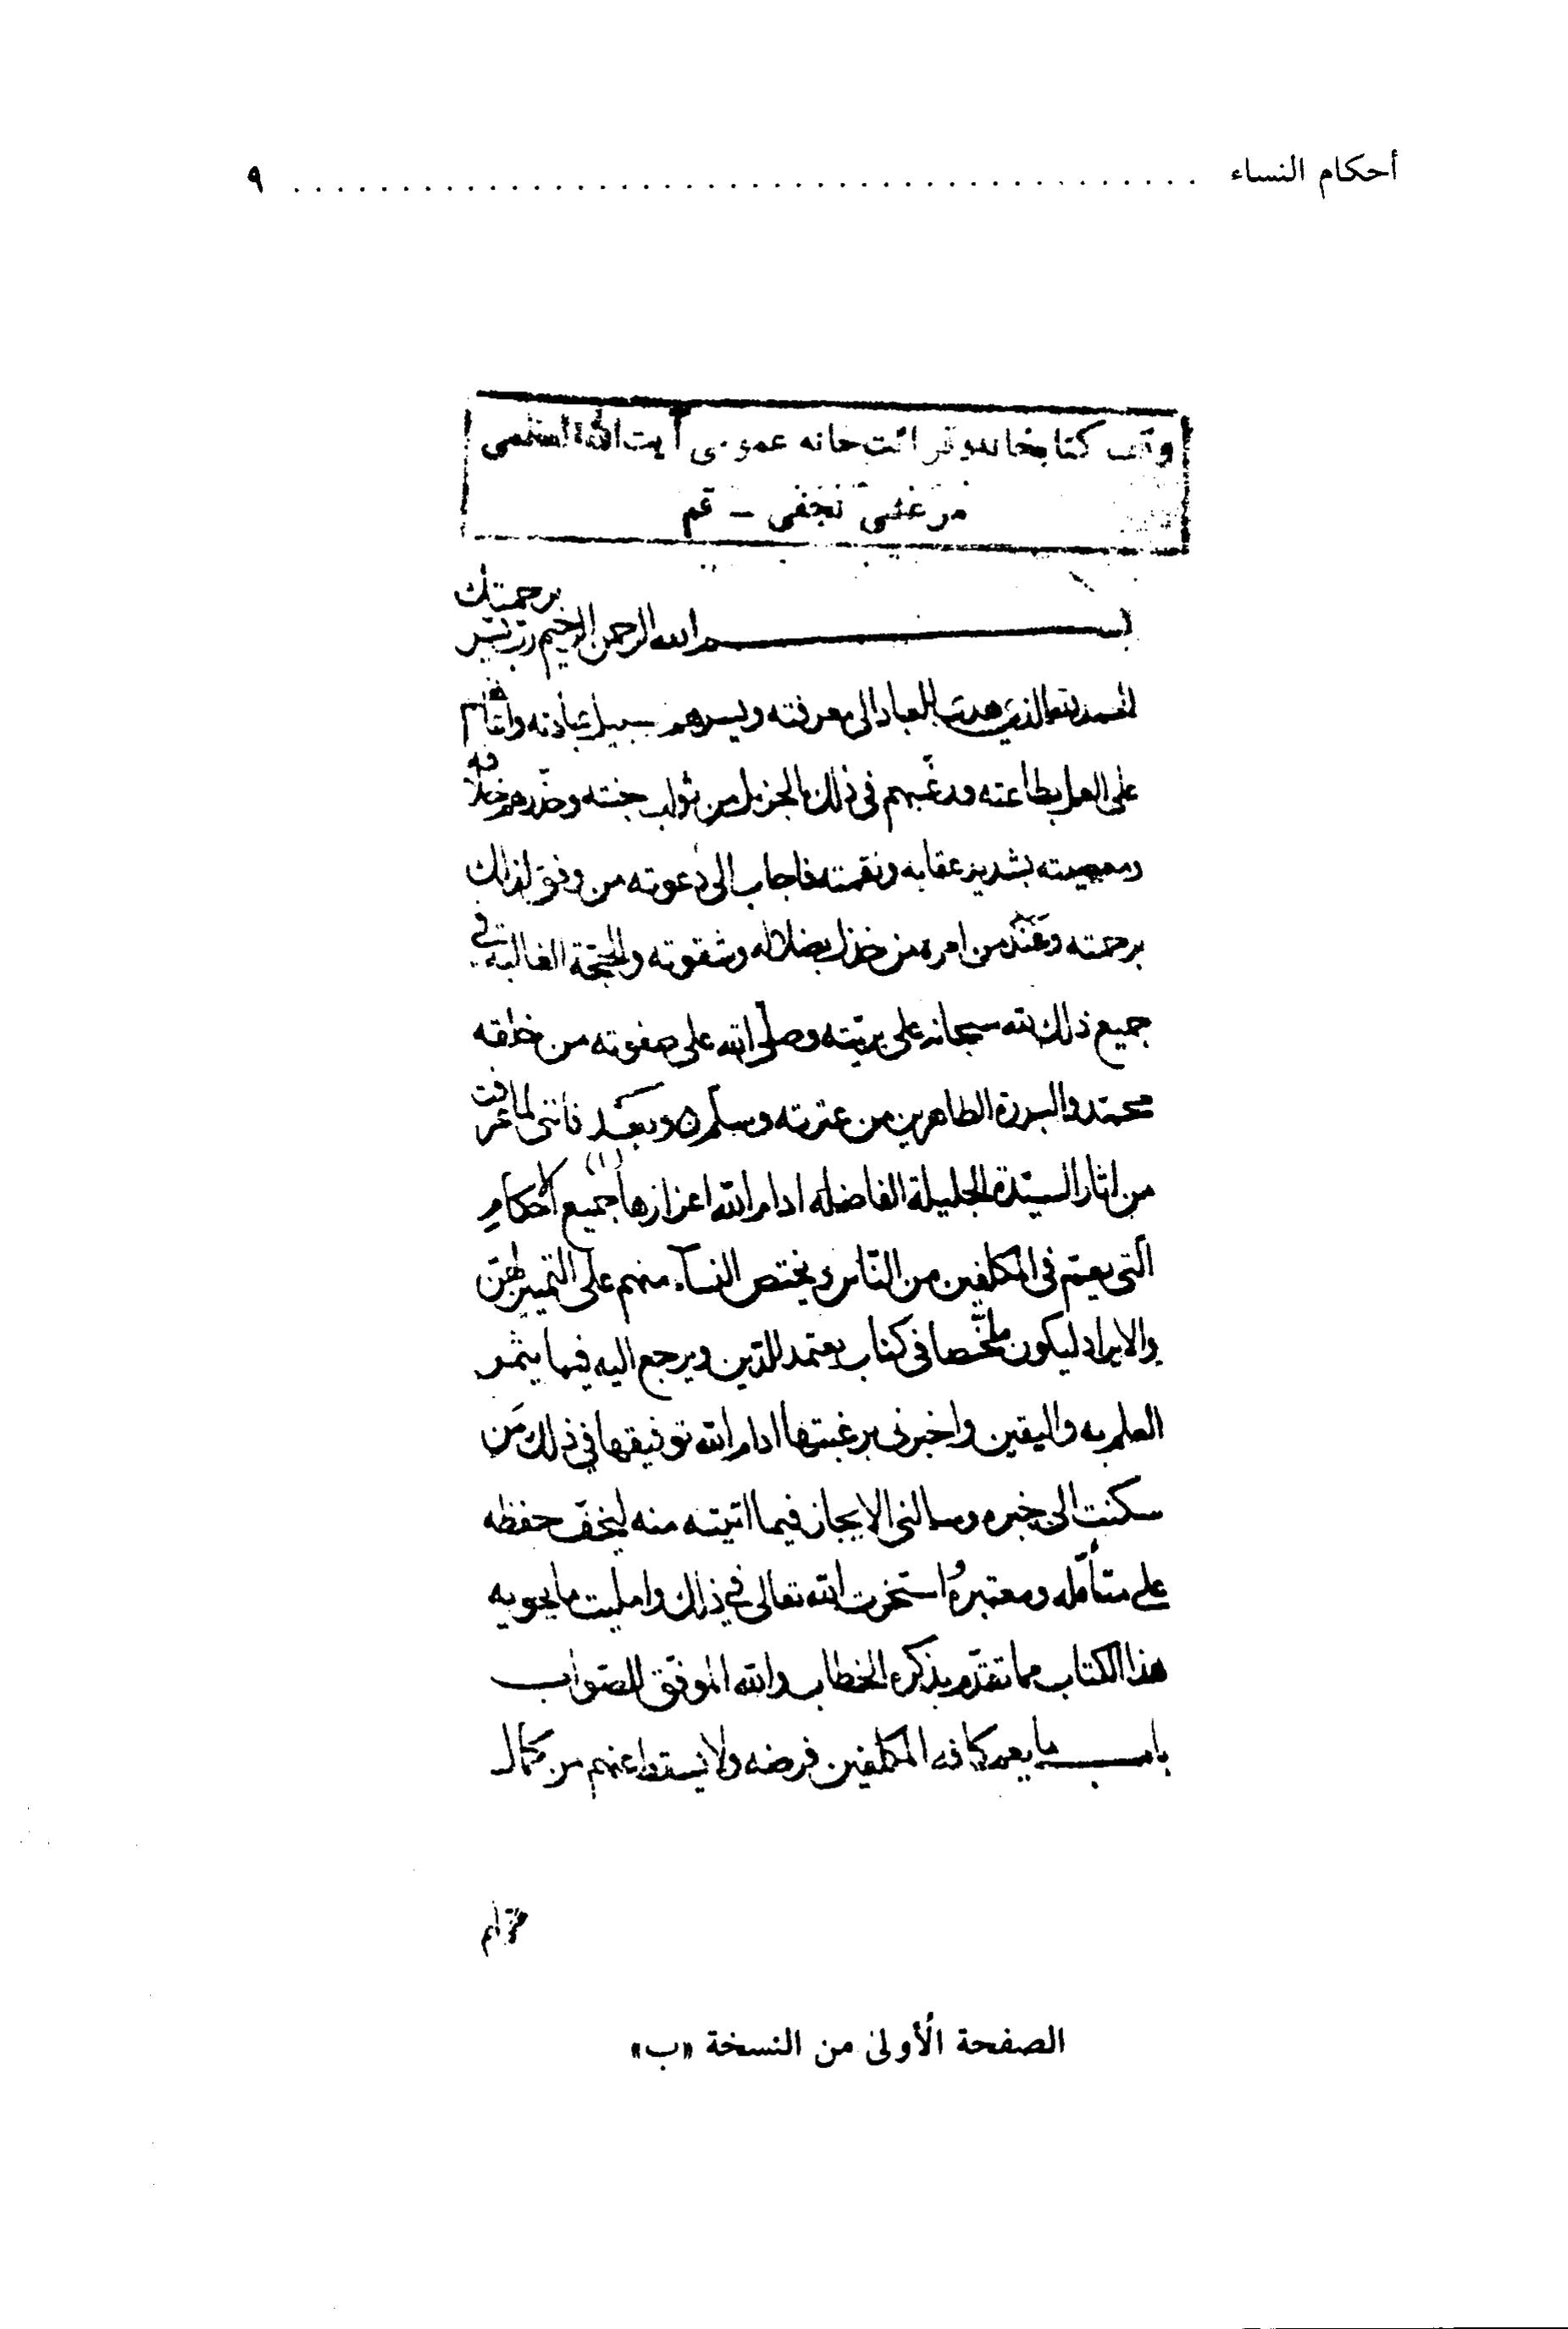 أحكام النساء ........................................ ٩
وقف كتابخانه وقرائت خانه عمومى آيت الله العظمى
مرعشى نجفى - قم
برحمتك
بسم الله الرحمن الرحيم رب يسر
الحمد لله الذى هدى العباد الى معرفته ويسرهم سبيل عبادته
على العمل بطاعته ورغّبهم فى ذلك بالجزيل من ثواب جنته وحذّرهم خلافه
ومعصيته بشديد عقابه ونقمته فاجاب الى دعوته من وفق لذلك
برحمته وعَنَدَ من امره من خذل بضلاله وشقوته والحجّة الغالبة فى
جميع ذلك لله سبحانه على بريّته وصلّى الله على صفوته من خلقه
محمّد والبررة الطاهرين من عترته وسلم وبعد فانّنى لما عرفت
من اثار السيّدة الجليلة الفاضله ادام الله اعزازها جميع الاحكام
الّتى يعمّ فى المكلفين من النّاس ويختص النسآء منهم على التمييز لهنّ
والايراد ليكون ملخّصا فى كتاب يعتمد للدّين ويرجع اليه فيما يثمر
العلم به واليقين واخبرنى برغبتها ادام الله توفيقها فى ذلك مَن
سكنت الى خبره وسالنى الايجاز فيما اثبته منه ليخفّ حفظه
على متأمّله ومعتبره استخرت الله تعالى فى ذلك وامليت ما يحويه
هذا الكتاب مما تقدّم بذكره الخطاب والله الموفّق للصّواب
باب ما يعم كافه المكلفين فرضه ولا يسقط عنهم من كمال
الصفحة الأولى من النسخة «ب»